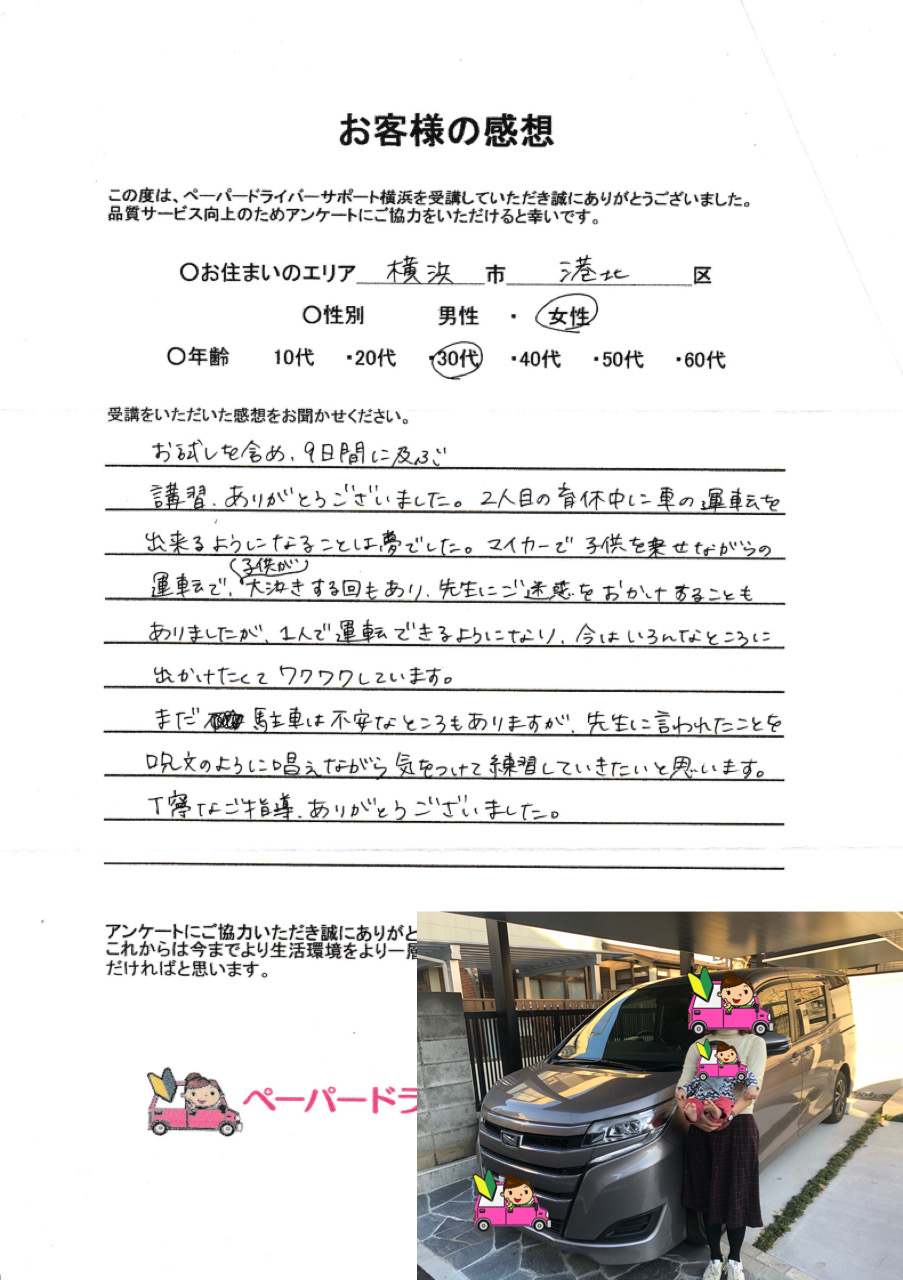 お客様の感想
この度は、ペーパードライバーサポート横浜を受講していただき誠にありがとうございました。
品質サービス向上のためアンケートにご協力をいただけると幸いです。
○お住まいのエリア 横浜 市 港北 区
○性別 男性 ・ 女性
○年齢 10代 ・20代 ・30代 ・40代 ・50代 ・60代
受講をいただいた感想をお聞かせください。
お試しを含め、9日間に及ぶ
講習、ありがとうございました。2人目の育休中に車の運転を
出来るようになることは夢でした。マイカーで子供を乗せながらの
運転で、子供が大泣きする回もあり、先生にご迷惑をおかけすることも
ありましたが、1人で運転できるようになり、今はいろんなところに
出かけたくてワクワクしています。
まだ駐車は不安なところもありますが、先生に言われたことを
呪文のように唱えながら気をつけて練習していきたいと思います。
丁寧なご指導、ありがとうございました。
アンケートにご協力いただき誠にありがと
これからは今までより生活環境をより一層
だければと思います。
ペーパードラ